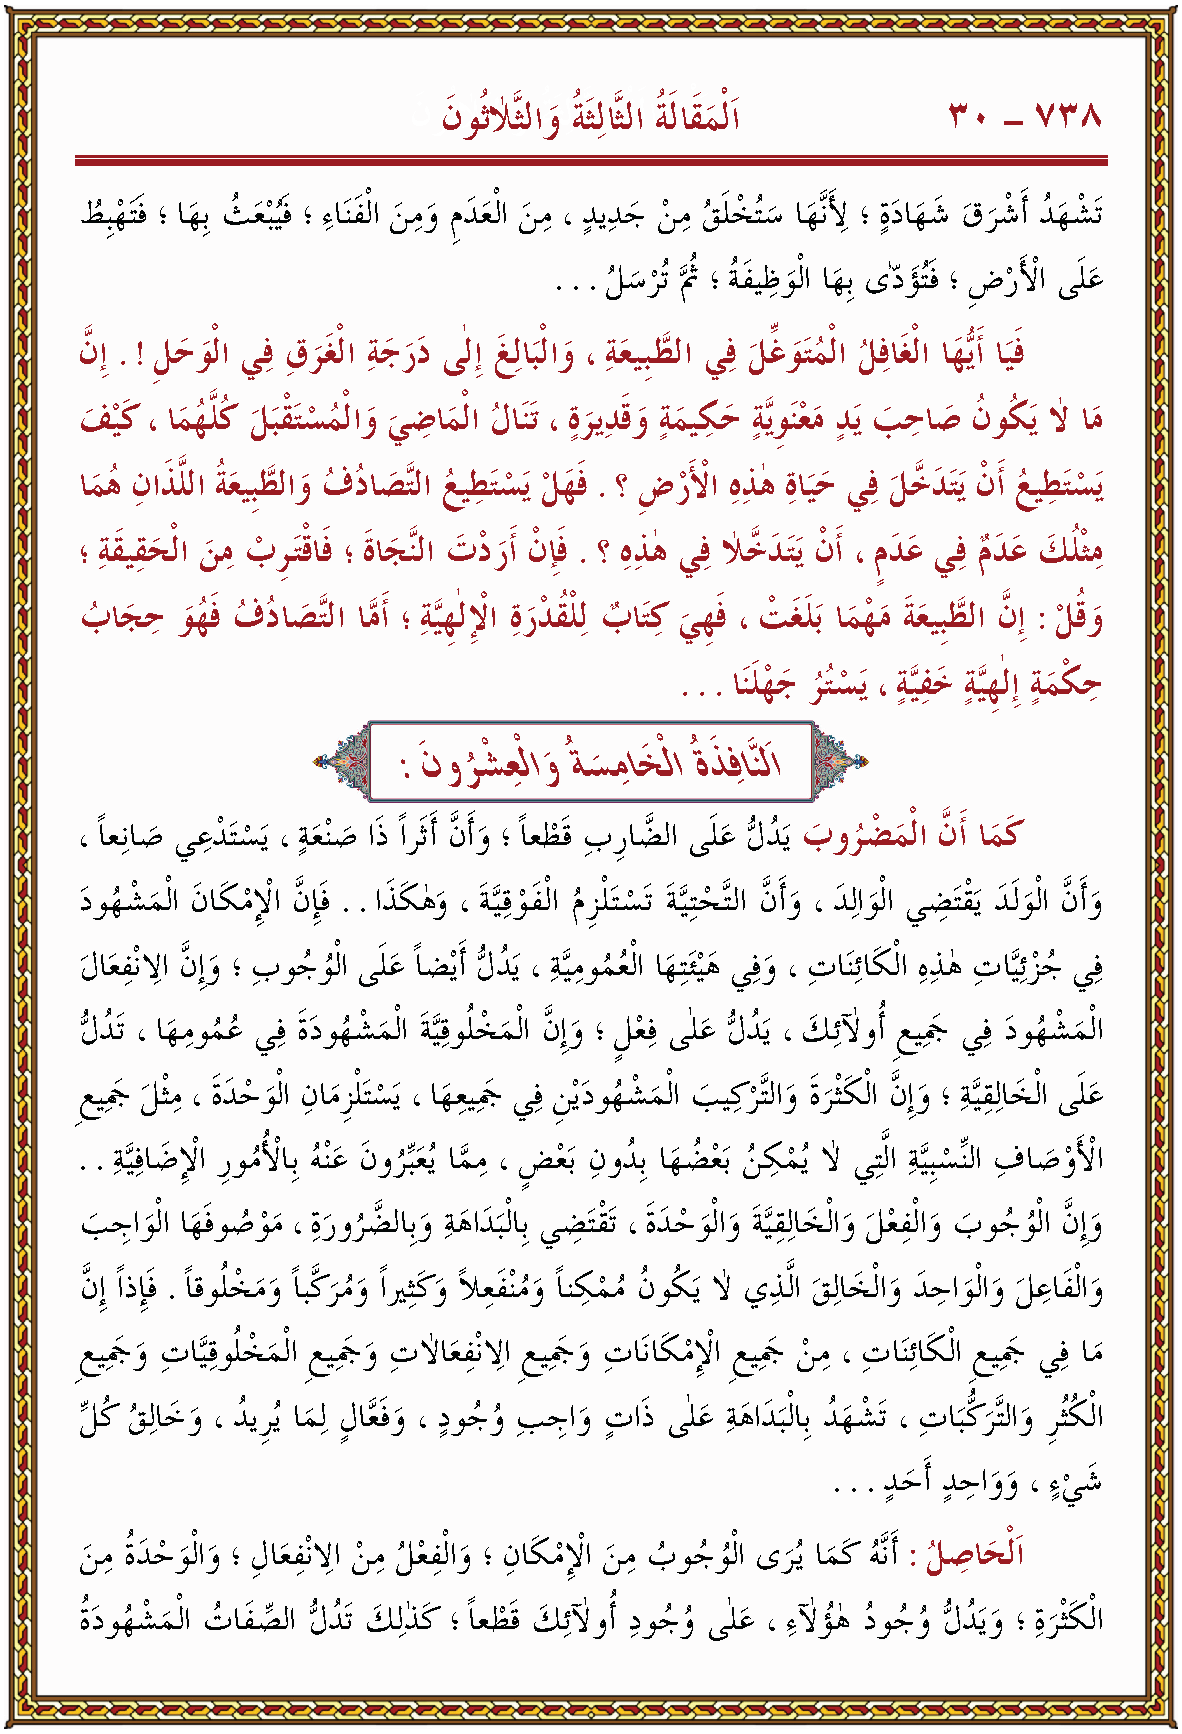 ٧٣٨ ـ ٣٠ اَلْمَقَالَةُ الثَّالِثَةُ وَالثَّلاٰثُونَ
تَشْهَدُ أَشْرَقَ شَهَادَةٍ ؛ لِأَنَّهَا سَتُخْلَقُ مِنْ جَدِيدٍ ، مِنَ الْعَدَمِ وَمِنَ الْفَنَاءِ ؛ فَيُبْعَثُ بِهَا ؛ فَتَهْبِطُ
عَلَى الْأَرْضِ ؛ فَتُؤَدّٰى بِهَا الْوَظِيفَةُ ؛ ثُمَّ تُرْسَلُ . . .
فَيَا أَيُّهَا الْغَافِلُ الْمُتَوَغِّلَ فِي الطَّبِيعَةِ ، وَالْبَالِغَ إِلٰى دَرَجَةِ الْغَرَقِ فِي الْوَحَلِ ! . إِنَّ
مَا لاٰ يَكُونُ صَاحِبَ يَدٍ مَعْنَوِيَّةٍ حَكِيمَةٍ وَقَدِيرَةٍ ، تَنَالُ الْمَاضِيَ وَالْمُسْتَقْبَلَ كُلَّهُمَا ، كَيْفَ
يَسْتَطِيعُ أَنْ يَتَدَخَّلَ فِي حَيَاةِ هٰذِهِ الْأَرْضِ ؟ . فَهَلْ يَسْتَطِيعُ التَّصَادُفُ وَالطَّبِيعَةُ اللَّذَانِ هُمَا
مِثْلُكَ عَدَمٌ فِي عَدَمٍ ، أَنْ يَتَدَخَّلاٰ فِي هٰذِهِ ؟ . فَإِنْ أَرَدْتَ النَّجَاةَ ؛ فَاقْتَرِبْ مِنَ الْحَقِيقَةِ ؛
وَقُلْ : إِنَّ الطَّبِيعَةَ مَهْمَا بَلَغَتْ ، فَهِيَ كِتَابٌ لِلْقُدْرَةِ الْإِلٰهِيَّةِ ؛ أَمَّا التَّصَادُفُ فَهُوَ حِجَابُ
حِكْمَةٍ إِلٰهِيَّةٍ خَفِيَّةٍ ، يَسْتُرُ جَهْلَنَا . . .
اَلنَّافِذَةُ الْخَامِسَةُ وَالْعِشْرُونَ :
كَمَا أَنَّ الْمَضْرُوبَ يَدُلُّ عَلَى الضَّارِبِ قَطْعاً ؛ وَأَنَّ أَثَراً ذَا صَنْعَةٍ ، يَسْتَدْعِي صَانِعاً ،
وَأَنَّ الْوَلَدَ يَقْتَضِي الْوَالِدَ ، وَأَنَّ التَّحْتِيَّةَ تَسْتَلْزِمُ الْفَوْقِيَّةَ ، وَهٰكَذَا . . فَإِنَّ الْإِمْكَانَ الْمَشْهُودَ
فِي جُزْئِيَّاتِ هٰذِهِ الْكَائِنَاتِ ، وَفِي هَيْئَتِهَا الْعُمُومِيَّةِ ، يَدُلُّ أَيْضاً عَلَى الْوُجُوبِ ؛ وَإِنَّ الِانْفِعَالَ
الْمَشْهُودَ فِي جَمِيعِ أُولٰٓئِكَ ، يَدُلُّ عَلٰى فِعْلٍ ؛ وَإِنَّ الْمَخْلُوقِيَّةَ الْمَشْهُودَةَ فِي عُمُومِهَا ، تَدُلُّ
عَلَى الْخَالِقِيَّةِ ؛ وَإِنَّ الْكَثْرَةَ وَالتَّرْكِيبَ الْمَشْهُودَيْنِ فِي جَمِيعِهَا ، يَسْتَلْزِمَانِ الْوَحْدَةَ ، مِثْلَ جَمِيعِ
الْأَوْصَافِ النِّسْبِيَّةِ الَّتِي لاَ يُمْكِنُ بَعْضُهَا بِدُونِ بَعْضٍ ، مِمَّا يُعَبِّرُونَ عَنْهُ بِالْأُمُورِ الْإِضَافِيَّةِ . .
وَإِنَّ الْوُجُوبَ وَالْفِعْلَ وَالْخَالِقِيَّةَ وَالْوَحْدَةَ ، تَقْتَضِي بِالْبَدَاهَةِ وَبِالضَّرُورَةِ ، مَوْصُوفَهَا الْوَاجِبَ
وَالْفَاعِلَ وَالْوَاحِدَ وَالْخَالِقَ الَّذِي لاٰ يَكُونُ مُمْكِناً وَمُنْفَعِلاً وَكَثِيراً وَمُرَكَّباً وَمَخْلُوقاً . فَإِذاً إِنَّ
مَا فِي جَمِيعِ الْكَائِنَاتِ ، مِنْ جَمِيعِ الْإِمْكَانَاتِ وَجَمِيعِ الِانْفِعَالاٰتِ وَجَمِيعِ الْمَخْلُوقِيَّاتِ وَجَمِيعِ
الْكُثُرِ وَالتَّرَكُّبَاتِ ، تَشْهَدُ بِالْبَدَاهَةِ عَلٰى ذَاتٍ وَاجِبِ وُجُودٍ ، وَفَعَّالٍ لِمَا يُرِيدُ ، وَخَالِقُ كُلِّ
شَيْءٍ ، وَوَاحِدٍ أَحَدٍ . . .
اَلْحَاصِلُ : أَنَّهُ كَمَا يُرَى الْوُجُوبُ مِنَ الْإِمْكَانِ ؛ وَالْفِعْلُ مِنْ الِانْفِعَالِ ؛ وَالْوَحْدَةُ مِنَ
الْكَثْرَةِ ؛ وَيَدُلُّ وُجُودُ هٰؤُلآٰءِ ، عَلٰى وُجُودِ أُولٰٓئِكَ قَطْعاً ؛ كَذٰلِكَ تَدُلُّ الصِّفَاتُ الْمَشْهُودَةُ